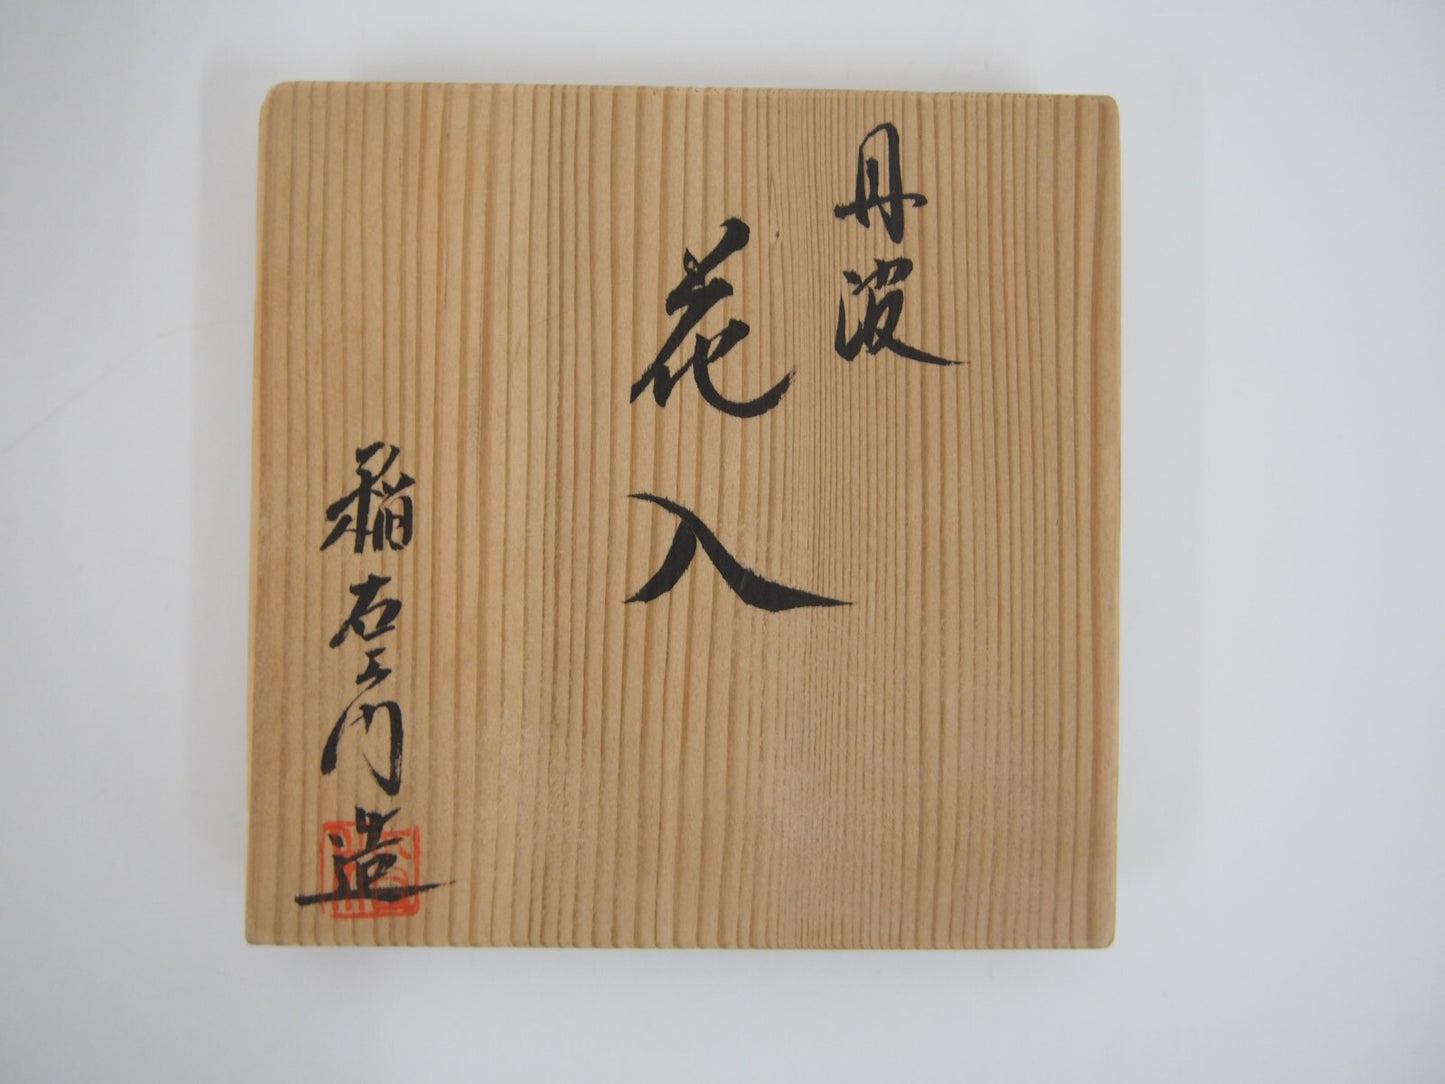 丹波
花入
稲右エ門造